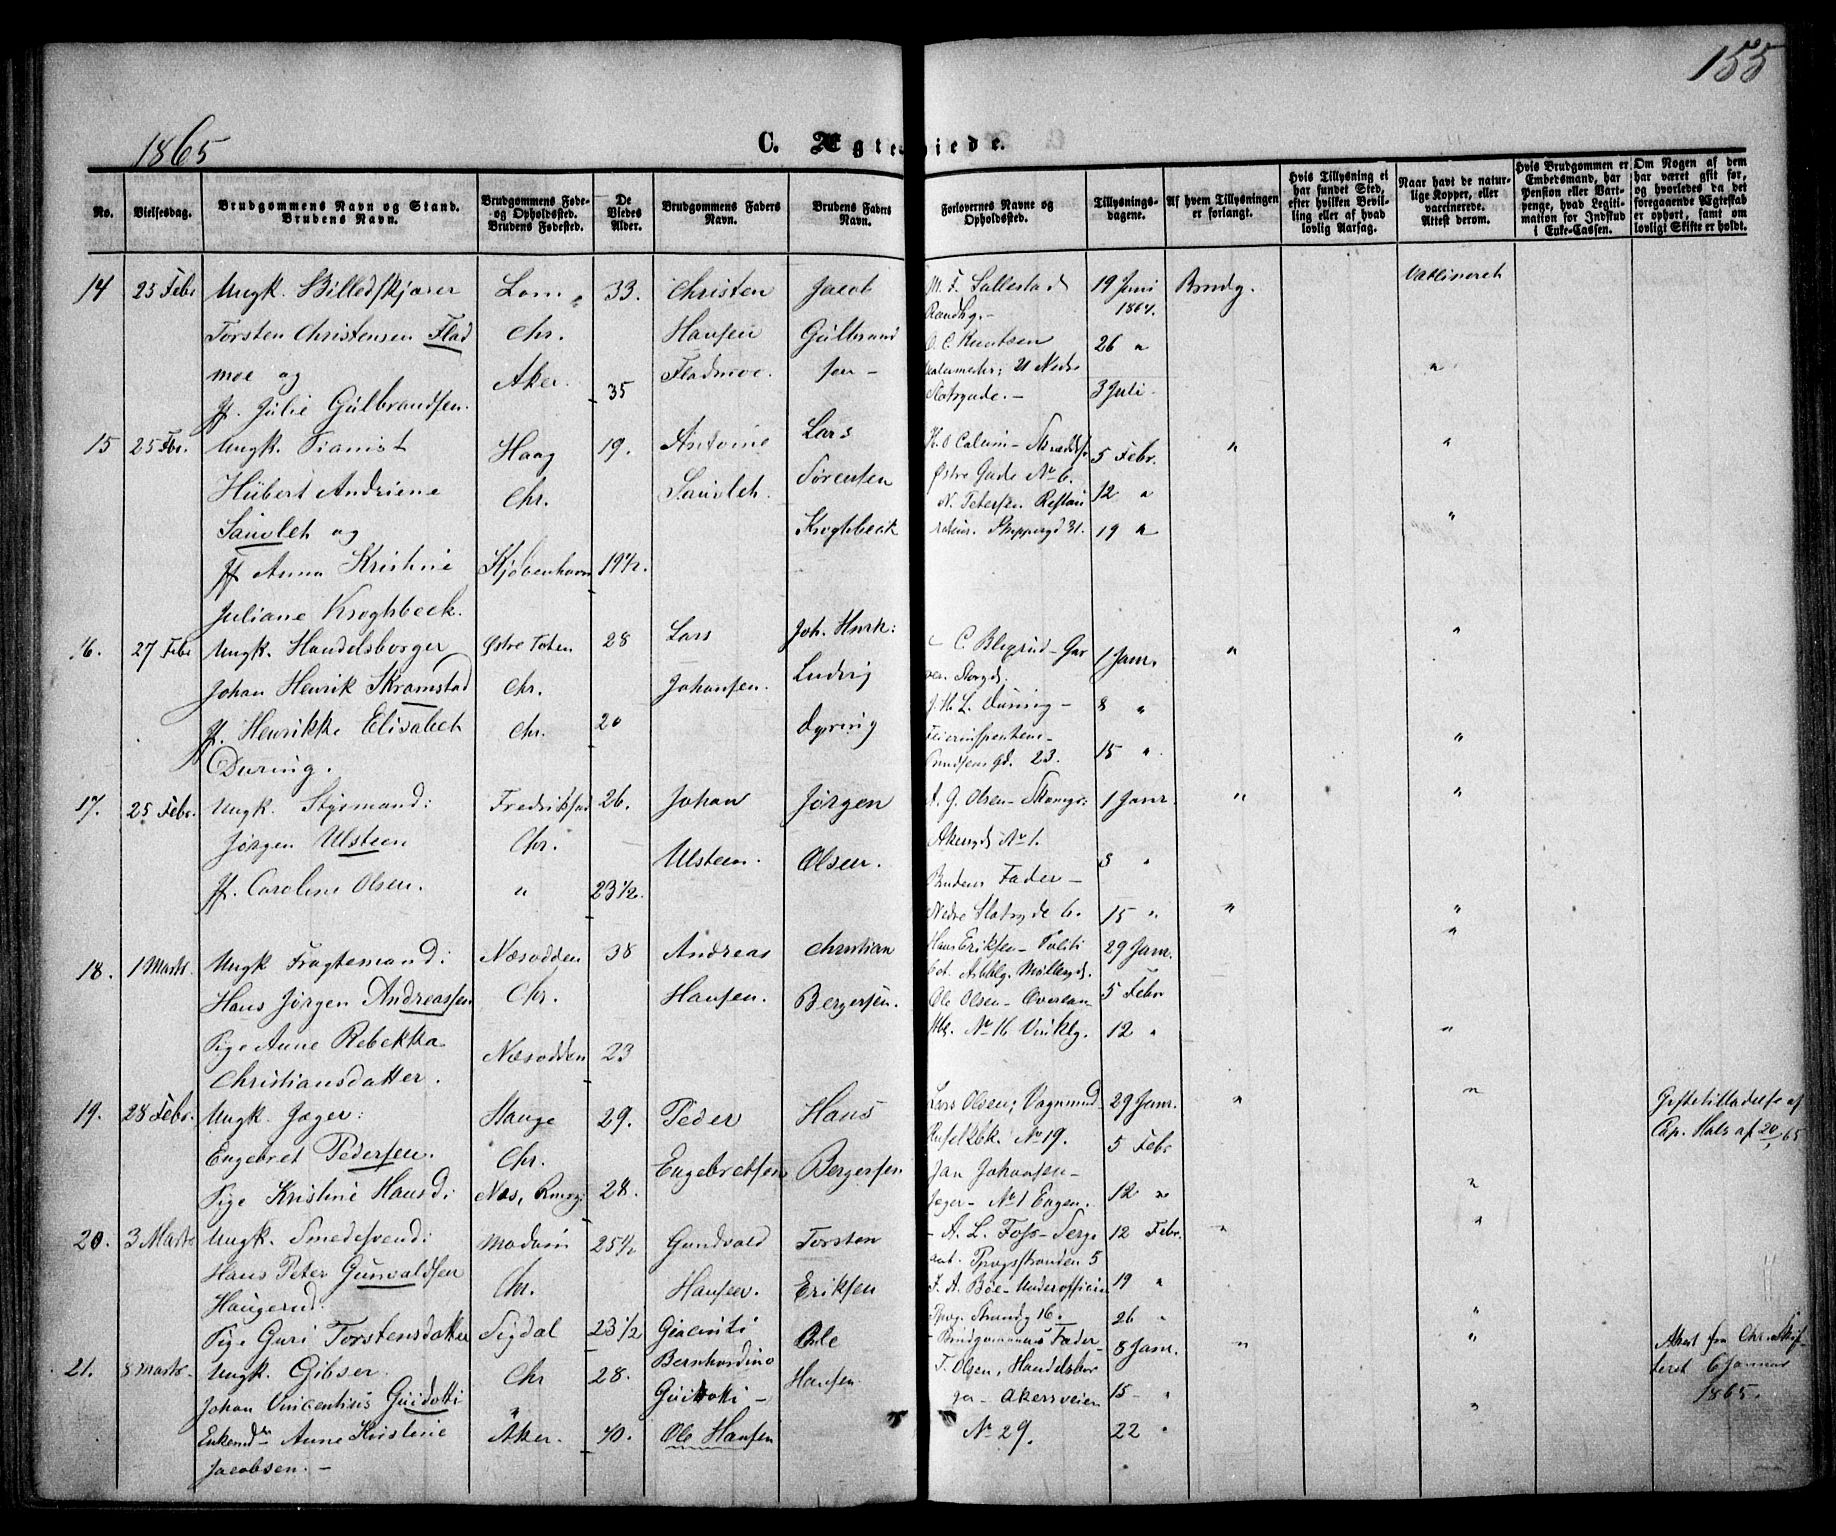 155
1865
C. Ægteviede.
No.
Vielsesdag.
Brudgommens Navn og Stand.
Brudens Navn.
Brudgommens Føde-
og Opholdssted.
Brudens Fødested.
De
Viedes
Alder.
Brudgommens Faders
Navn.
Brudens Faders
Navn.
Forlovernes Navne og
Opholdssted.
Tillysnings-
dagene.
Af hvem Tillysningen
er forlangt.
Hvis Tillysning ei
har fundet Sted,
efter hvilken Bevil-
ling eller af hvad
lovlig Aarsag.
Naar havt de natur-
lige Kopper, eller
vaccinerede.
Attest derom.
Hvis Brudgommen er
Embedsmand, har
Pension eller Vart-
penge, hvad Legiti-
mation for Indskud
i Enke-Cassen.
Om Nogen af dem
har været gift før,
og hvorledes da det
foregaaende Ægteskab
er ophørt, samt om
lovligt Skifte er holdt.
14 25 Febr Ungk. Billedskjærer Lom 33. Christen Jacob M. F. Sallestad 19 Juni Brudg. Vaccineret
Torsten Christensen Flad Chr. Hansen Gulbrand Raadhg. 1864.
moe og Aker. 35 Fladmoe. sen O. C. Knutsen 26 "
Jf. Julie Gulbrandsen. Slotsgade. 3 Juli
15 25 Fbr. Ungk. Pianist Haag 19. Antoine Lars 5 Febr. " "
Hubert Andriene Chr. Sauvlet. Sørensen Østre Gade No 6. 12 "
Sauvlet og Kroghbeck N. Petersen Restau
rateur. Skippergd 31. 19 "
Jf Anna Kristine Kjøbenhavn 19 1/2.
Juliane Kroghbeck.
16. 27 Febr Ungk. Handelsborger Østre Toten 28 Lars Joh. Henr: C. Blegrud - Gar 1 Janr. " "
Johan Henrik Skramstad Chr. Johansen. Ludvig ver. Storgd.
Jf. Henrikke Elisabet Chr. 20 Dyring J. H. L. During 8 "
During. 23. 15 "
17. 25 Febr. Ungk. Styrmand: Fredrikstad 26. Johan Jørgen A. G. Olsen - Skomgr: 1 Janr. " "
Jørgen Ulsteen Chr. Ulsteen. Olsen. Akersgd No 1. 8 "
Jf. Caroline Olsen. " 23 1/2. Brudens Fader
Nedre Slotsgde 6. 15 "
18. 1 Marts Ungk Fragtemand: Næsodden 38 Andreas Christian Hans Eriksen - Politi 29 Janr.
Hans Jørgen Andreassen Chr. Hansen. Bergersen. bet. Møllergd. 5 Febr
Pige Anne Rebekka Næsodden 23 Ole Olsen
Christiansdatter. No 16 Vinklg. 12 "
19. 28 Febr. Ungk. Jæger: Stange 29. Peder Hans Lars Olsen, Vognmnd 29 Janr. " " Giftetilladelse af
Engebret Pedersen. Chr. Engebretsen Bergersen No 19. 5 Febr Cap. Hals af 20/1 65
Pige Kristine Hansd: Næs, Romrg: 28. Jan Johansen
Jæger - No 1 Engen. 12 "
20. 3 Marts Ungk. Smedesvend: Modum 25 1/2 Gundvald Torsten A. L. Foss - Serge 12 Febr. " "
Hans Peter Gunvaldsen Chr. Hansen. Eriksen ant. Pipervsstranden 5
Haugerud. F. A. Bøe - Underofficier 19 "
Pige Guri Torstensdatter Sigdal 23 1/2 Strandg 16. 26 "
21. 8 Marts. Ungk. Gibser. Chr 28. Giacinto Ole Brudgommens Fader 8 Janr. " " Attest fra Chr. Skif
Johan Vincentius Guidotti " Bernhardino Hansen T. Olsen, Handelsbor teret 6 Januar
Guidotti ger - Akersveien 15 " 1865.
Enkemdn Anne Kristine Aker. 40. Ole Hansen No 29. 22 "
Jacobsen.